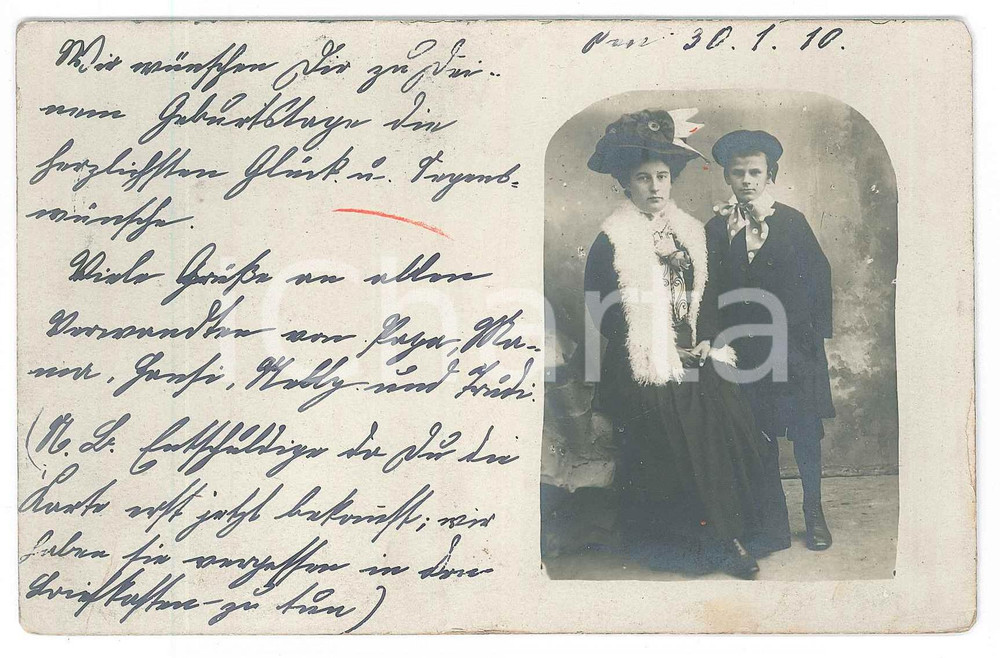 Den 30.1.10.
Wir wünschen Dir zu Dei-
nem Geburtstage die
herzlichsten Glück u. Segens-
wünsche.
Viele Grüße an allen
Verwandten von Papa, Ma-
ma, Hansi, Nelly und Trudi.
(N. B. Entschuldige da Du die
Karte erst jetzt bekomst; wir
haben sie vergessen in den
Briefkasten zu tun)
Charta